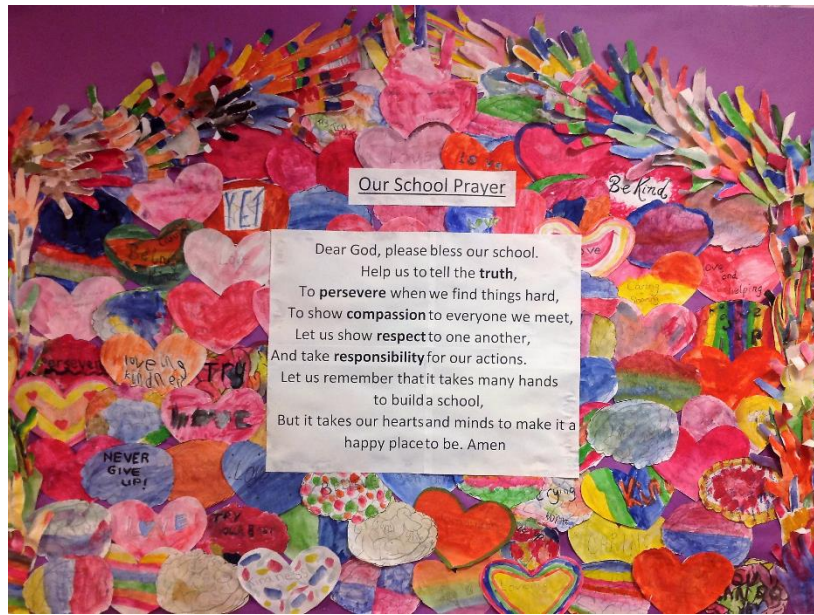 Our School Prayer
Dear God, please bless our school.
Help us to tell the truth,
To persevere when we find things hard,
To show compassion to everyone we meet,
Let us show respect to one another,
And take responsibility for our actions.
Let us remember that it takes many hands
to build a school,
But it takes our hearts and minds to make it a
happy place to be. Amen
Be Kind
YET
love
and
helping
loveing
kindnes
Try
love
NEVER
GIVE
UP!
LOVE